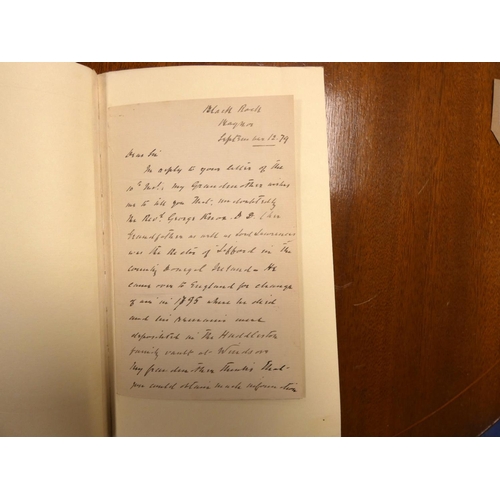 Black Rock
September 12. 79
Dear Sir
In reply to your letter of the
my Grandmother wishes
me to tell you that, undoubtedly
the Revd. George Knox D D (her
Grandfather as well as Lord
was the Rector of Lifford in the
county Donegal Ireland - He
came over to England for change
of air in 1795 where he died
and his remains were
deposited in the Huddleston
family vault at Windsor
My grandmother thinks that
you could obtain much information